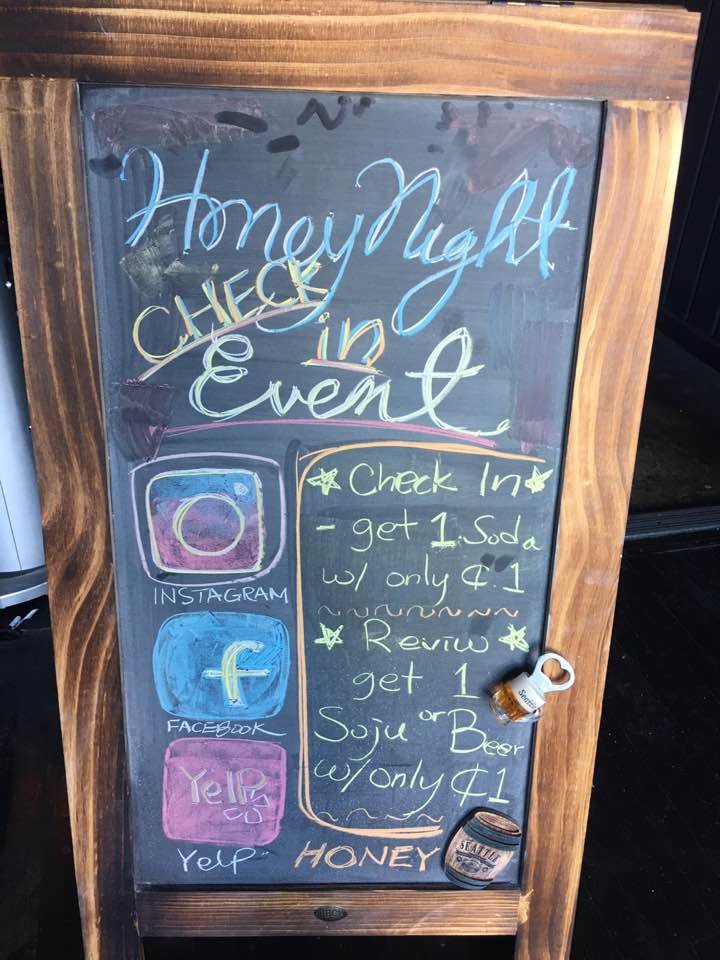 Honey Night
CHECK
in
Event
INSTAGRAM
f
FACEBOOK
Yelp
Yelp
Check In
- get 1 Soda
w/ only ¢1
Reviw
get 1
Soju or Beer
w/ only ¢1
HONEY
SEATTLE